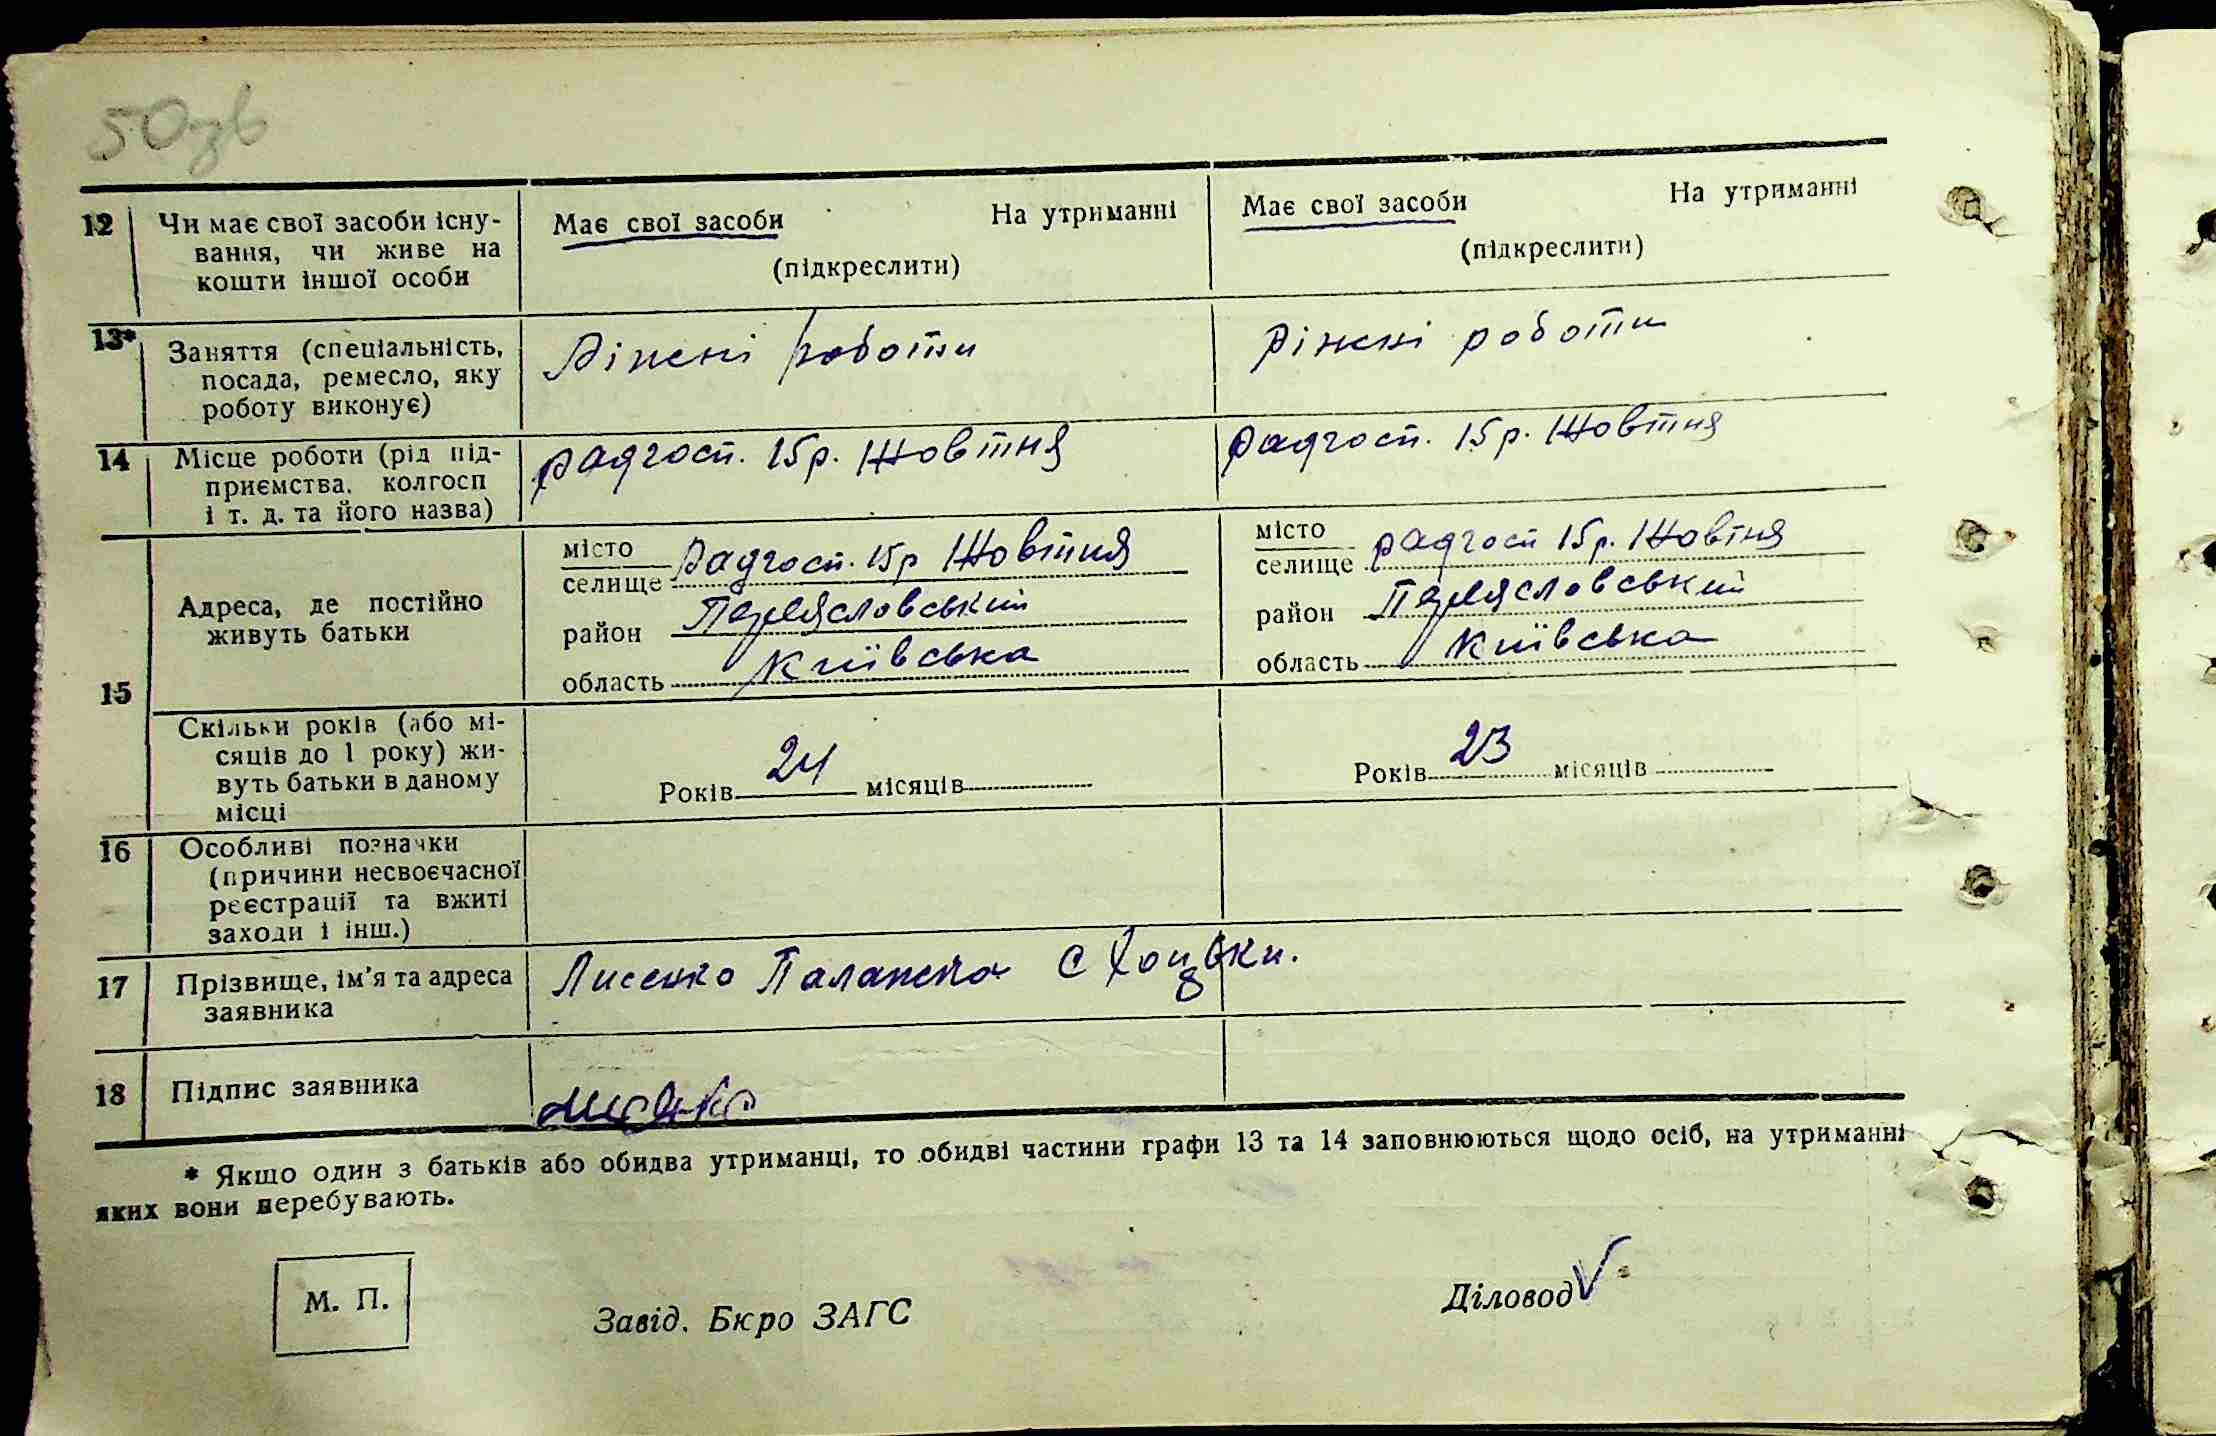 50зв
12 Чи має свої засоби існу- Має свої засоби На утриманні Має свої засоби На утриманні
вання, чи живе на (підкреслити) (підкреслити)
кошти іншої особи
13* Заняття (спеціальність, Ріжні роботи Ріжні роботи
посада, ремесло, яку
роботу виконує)
14 Місце роботи (рід під- радгосп. 15р. Жовтня радгосп. 15р. Жовтня
приємства, колгосп
і т. д. та його назва)
15 Адреса, де постійно
живуть батьки
місто
селище радгосп. 15р Жовтня
район Переяславський
область Київська
місто
селище радгосп 15р. Жовтня
район Переяславський
область Київська
Скільки років (або мі-
сяців до 1 року) жи-
вуть батьки в даному
місці
Років 24 місяців
Років 23 місяців
16 Особливі позначки
(причини несвоєчасної
реєстрації та вжиті
заходи і інш.)
17 Прізвище, ім'я та адреса Лисенко Палажка с Хоцьки.
заявника
18 Підпис заявника
* Якщо один з батьків або обидва утриманці, то обидві частини графи 13 та 14 заповнюються щодо осіб, на утриманні
яких вони перебувають.
М. П.
Завід. Бюро ЗАГС
Діловод